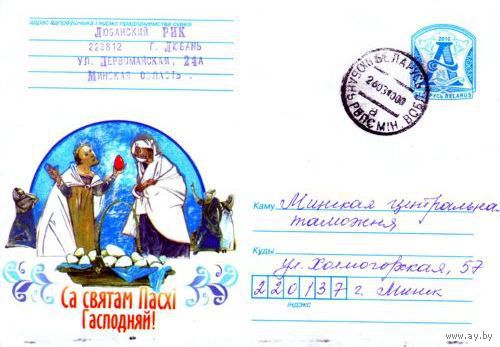 адрас адпраўшчыка і індэкс прадпрыемства сувязі
ЛЮБАНСКИЙ РИК
223812 Г. ЛЮБАНЬ
УЛ. ПЕРВОМАЙСКАЯ, 24А
МИНСКАЯ ОБЛАСТЬ
2010
БЕЛАРУСЬ BELARUS
БЕЛАРУСЬ
а
МІН. ВОБЛ
Са святам Пасхі
Гасподняй!
Каму Минская центральна
таможня
Куды
ул. Холмогорская, 57
220137 г. Минск
індэкс
www.ay.by